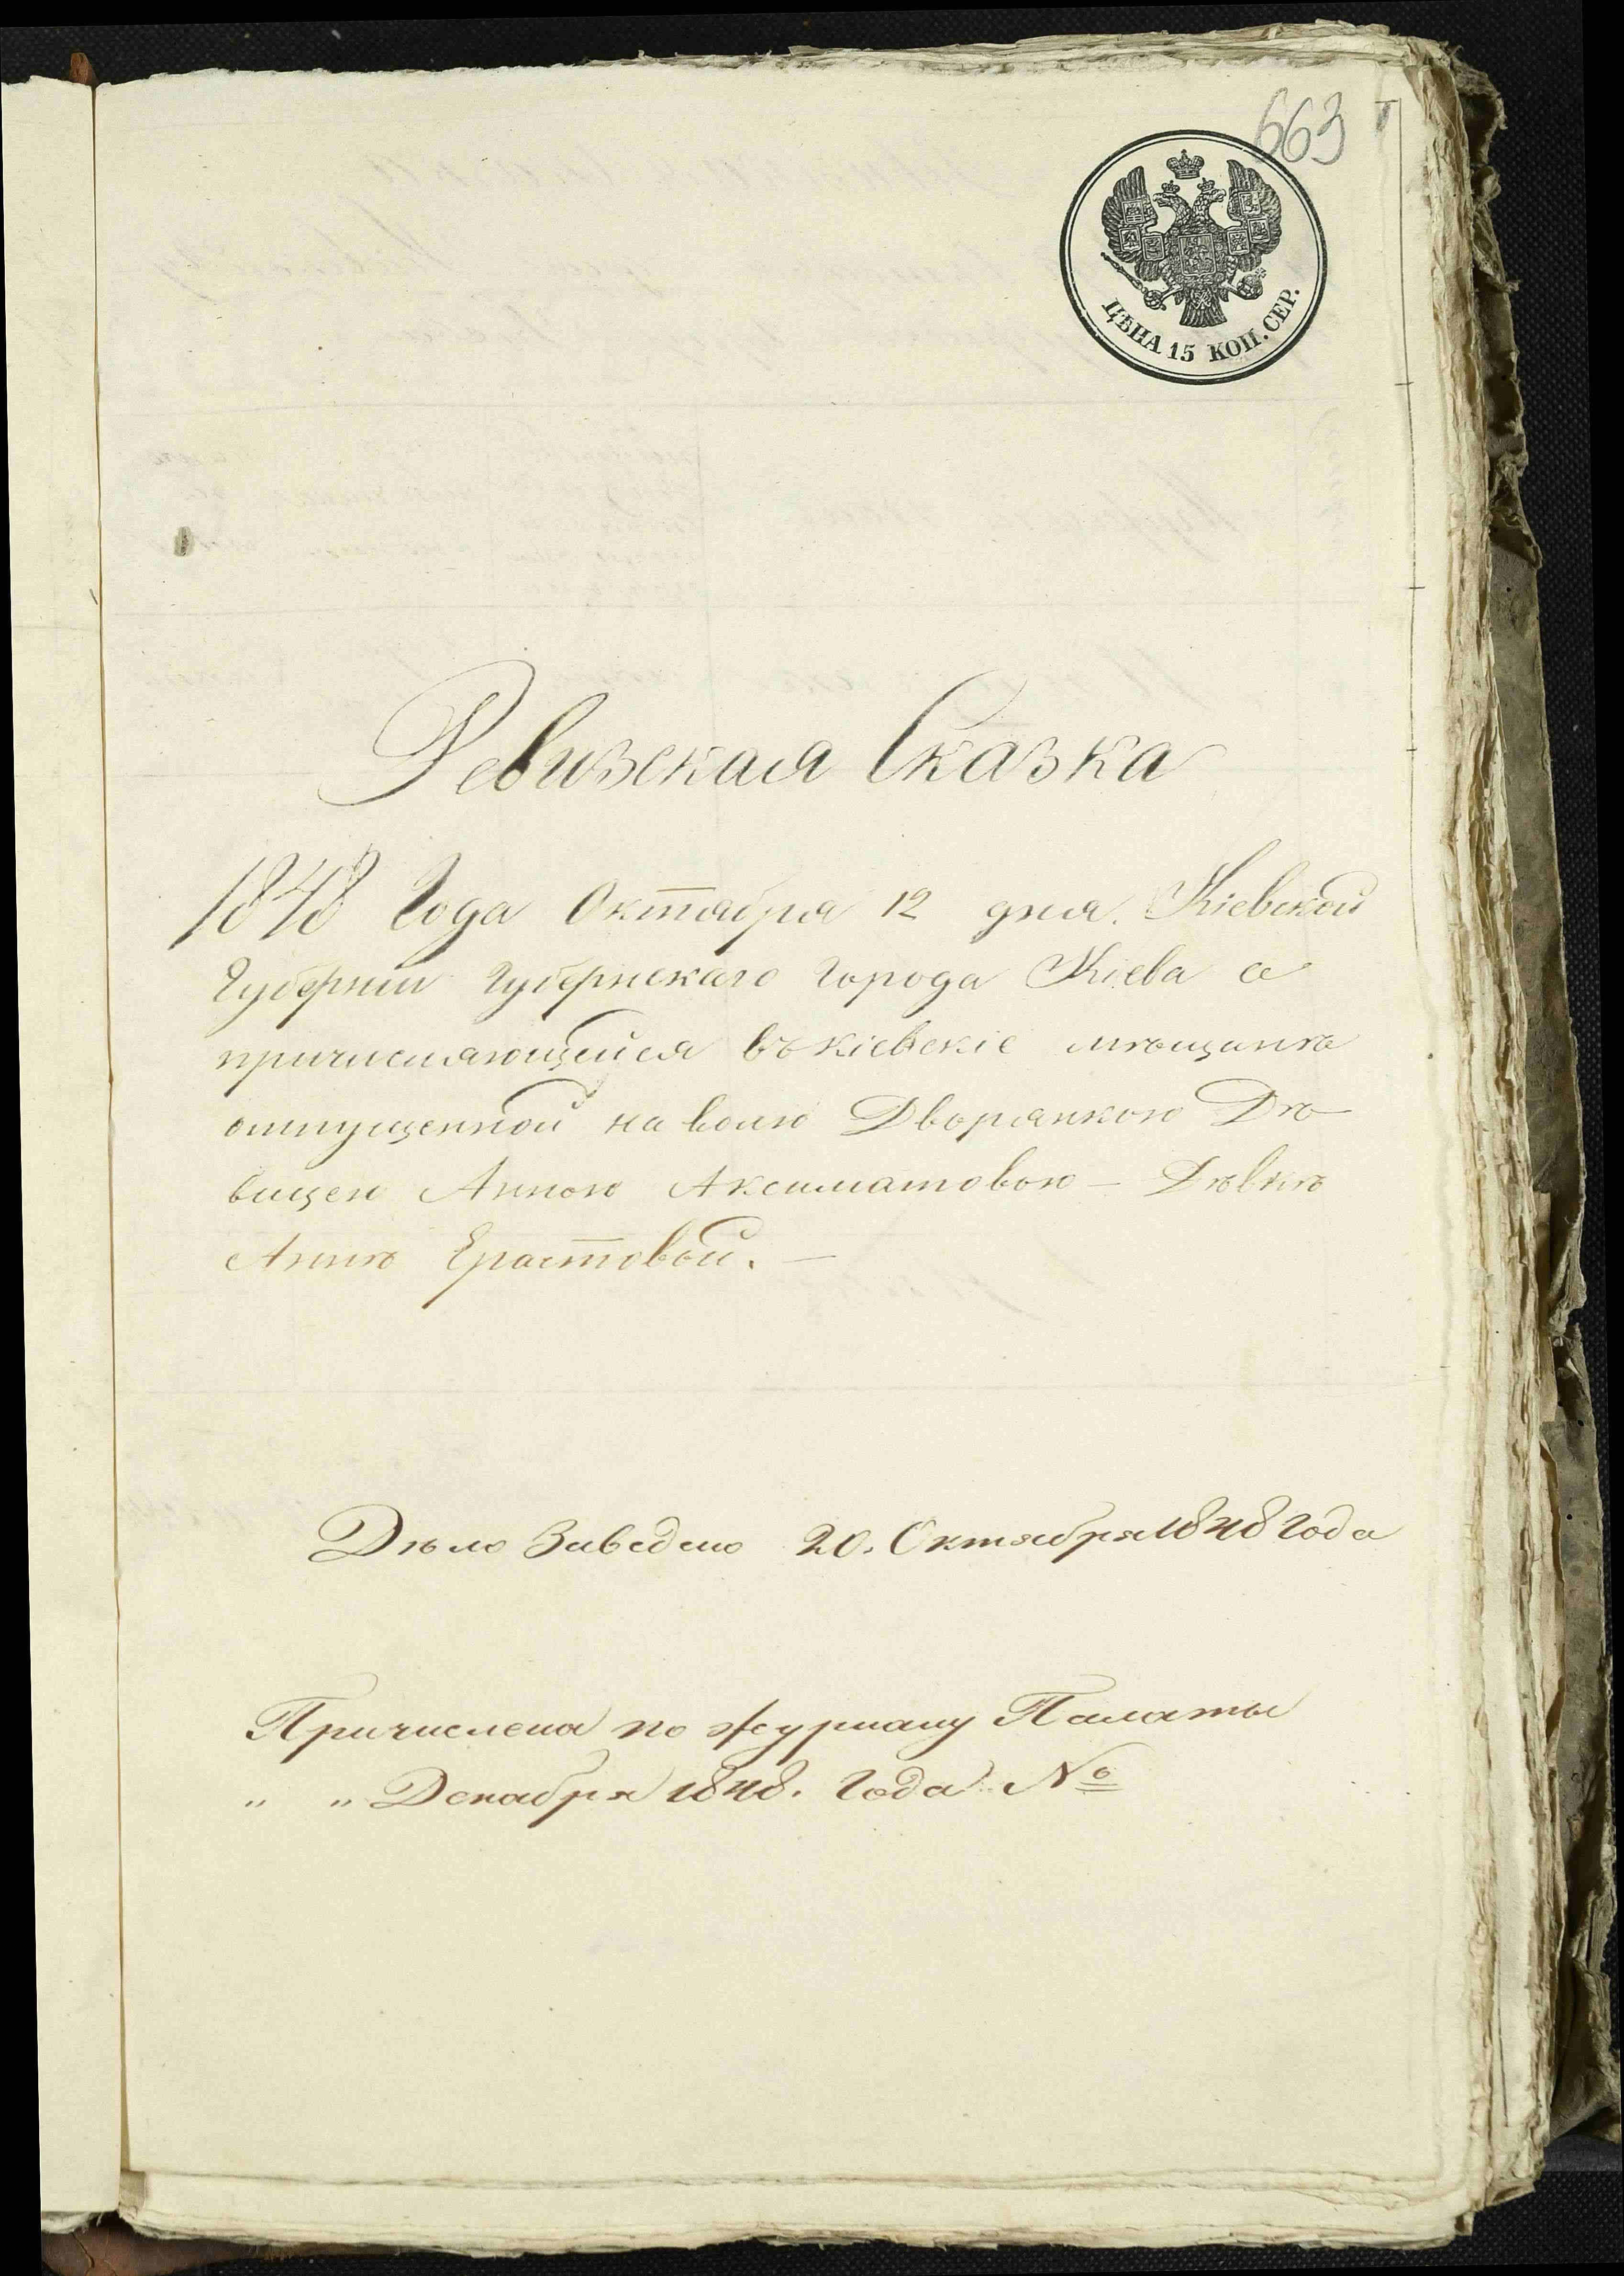 663
ЦѢНА 15 КОП. СЕР.
Ревизская Сказка
1848 Года Октября 12 дня. Кіевской
Губерніи Губернскаго Города Кіева о
причисляющейся въ кіевскіе мѣщанкѣ
отпущенной на волю Дворянкою Дѣ
вицею Анною Аксиматовою – Дѣвкѣ
Аннѣ Ерастовой. –
Дѣло Заведено 20. Октября 1848 Года
Причислена по журналу Палаты
„ „ Декабря 1848. Года №